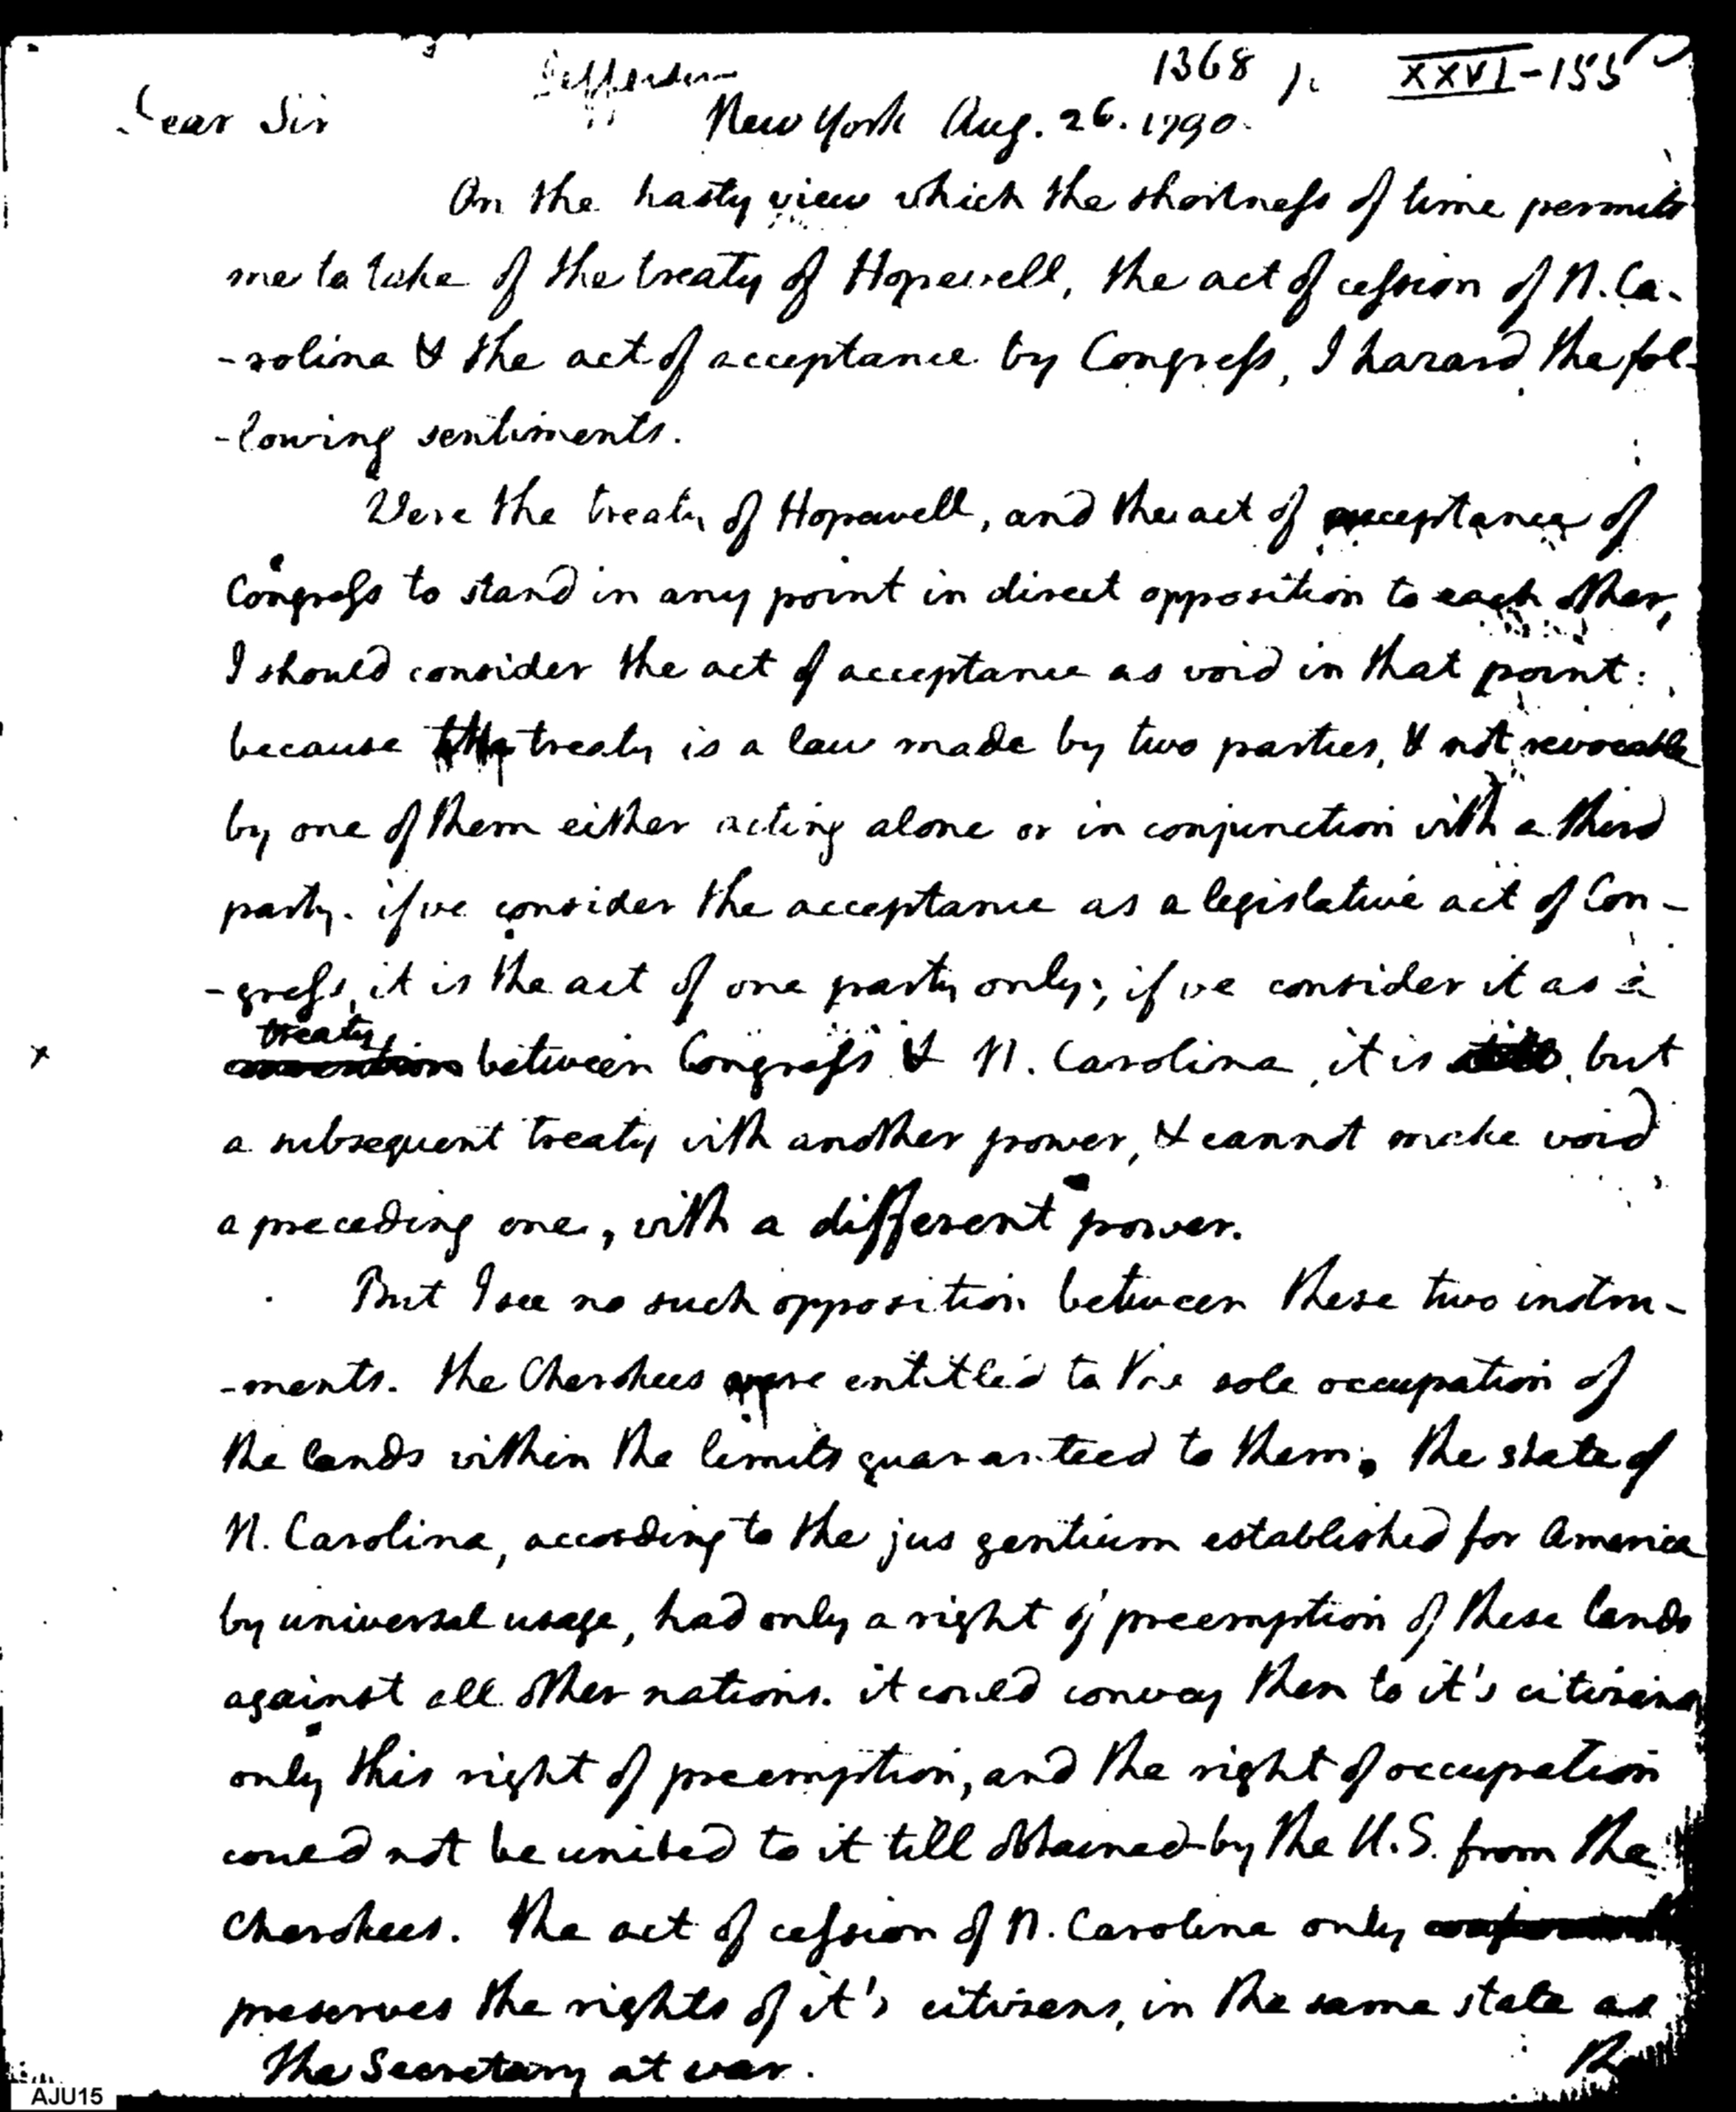 1368
XXVI-155
Jefferson
Dear Sir
New York Aug. 26. 1790.
On the hasty view which the shortness of time permits
me to take of the treaty of Hopewell, the act of cession of N. Ca-
-rolina & the act of acceptance by Congress, I hazard the fol-
-lowing sentiments.
Were the treaty of Hopewell, and the act of acceptance of
Congress to stand in any point in direct opposition to each other,
I should consider the act of acceptance as void in that point:
because the treaty is a law made by two parties, & not revocable
by one of them either acting alone or in conjunction with a third
party. if we consider the acceptance as a legislative act of Con-
-gress, it is the act of one party only; if we consider it as a
treaty
x between Congress & N. Carolina, it is but
a subsequent treaty with another power, & cannot make void
a preceding one, with a different power.
But I see no such opposition between these two instru-
-ments. the Cherokees were entitled to the sole occupation of
the lands within the limits guaranteed to them. the state of
N. Carolina, according to the jus gentium established for America
by universal usage, had only a right of preemption of these lands
against all other nations. it could convey then to it's citizens
only this right of preemption, and the right of occupation
could not be united to it till obtained by the U.S. from the
Cherokees. the act of cession of N. Carolina only
preserves the rights of it's citizens, in the same state as
The Secretary at war.
AJU15